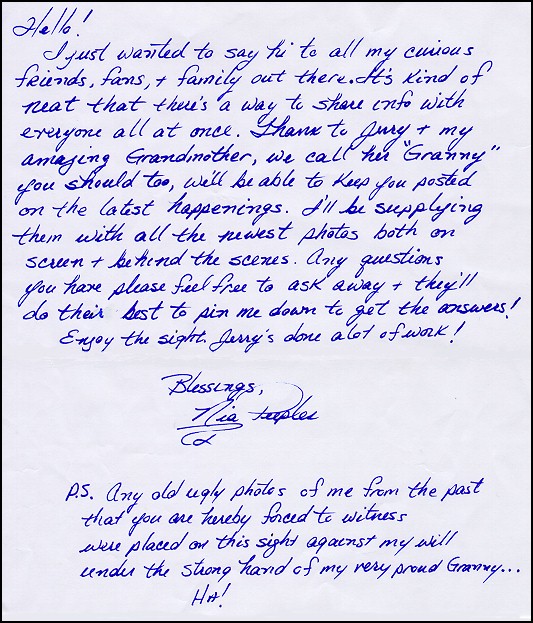 Hello!
I just wanted to say hi to all my curious
friends, fans, + family out there. It's kind of
neat that there's a way to share info with
everyone all at once. Thanx to Jerry + my
amazing Grandmother, we call her "Granny"
you should too, we'll be able to keep you posted
on the latest happenings. I'll be supplying
them with all the newest photos both on
screen + behind the scenes. Any questions
you have please feel free to ask away + they'll
do their best to pin me down to get the answers!
Enjoy the sight. Jerry's done alot of work!
Blessings,
Nia Peeples
P.S. Any old ugly photos of me from the past
that you are hereby forced to witness
were placed on this sight against my will
under the strong hand of my very proud Granny...
HA!